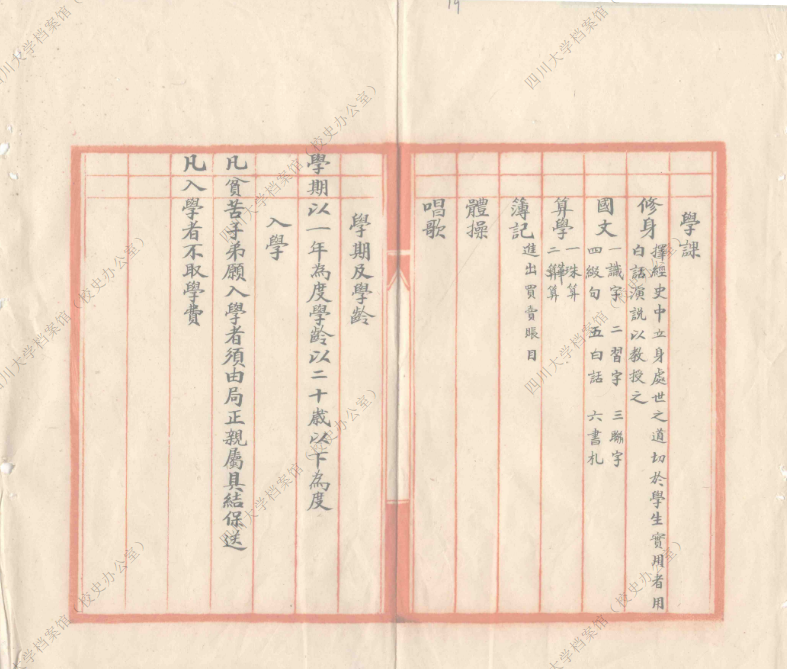 19
學課
修身
擇經史中立身處世之道切於學生實用者用
白話演說以教授之
國文
一識字 二習字 三聯字
四綴句 五白話 六書札
算學
一珠算
二筆算
簿記
進出買賣賬目
體操
唱歌
學期及學齡
學期以一年為度學齡以二十歲以下為度
入學
凡貧苦子弟願入學者須由局正親屬具結保送
凡入學者不取學費
四川大学档案馆（校史办公室）